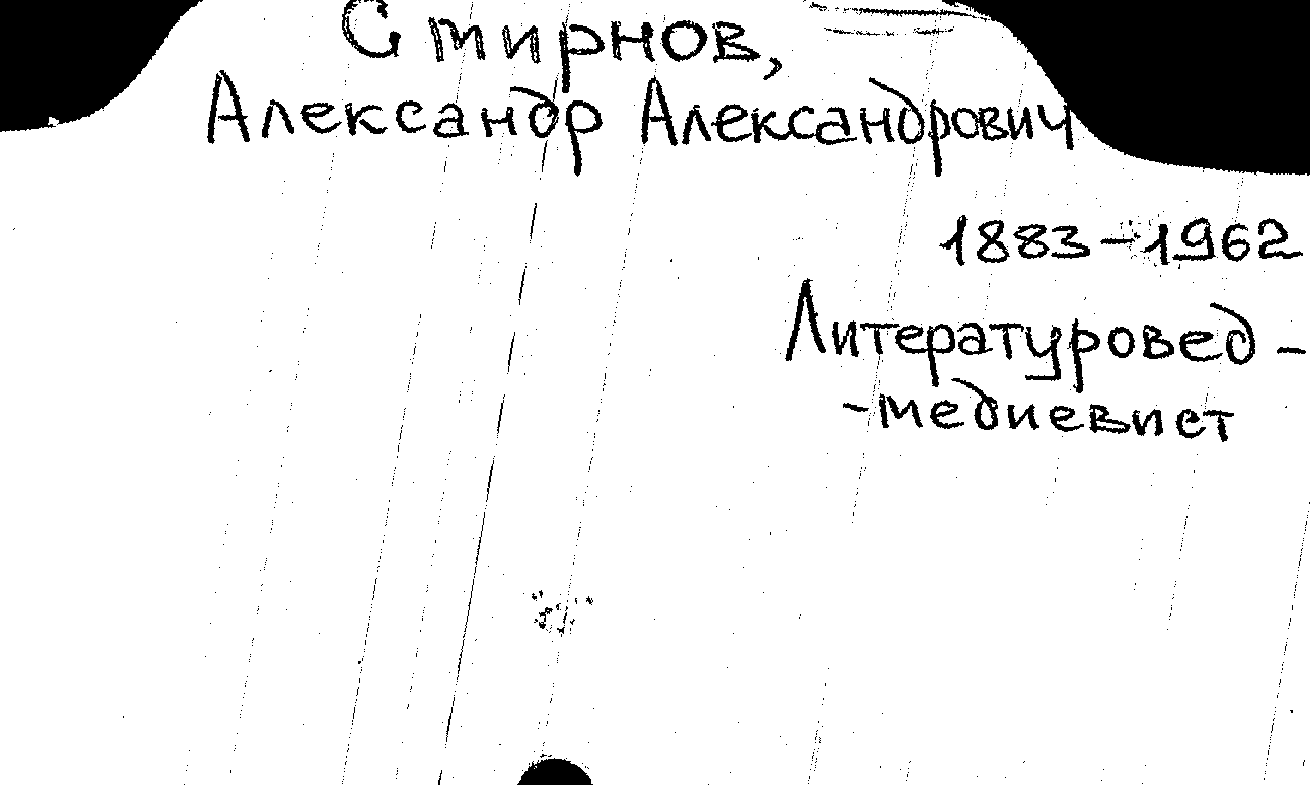 Смирнов,
Александр Александрович
1883-1962
Литературовед-
-медиевист